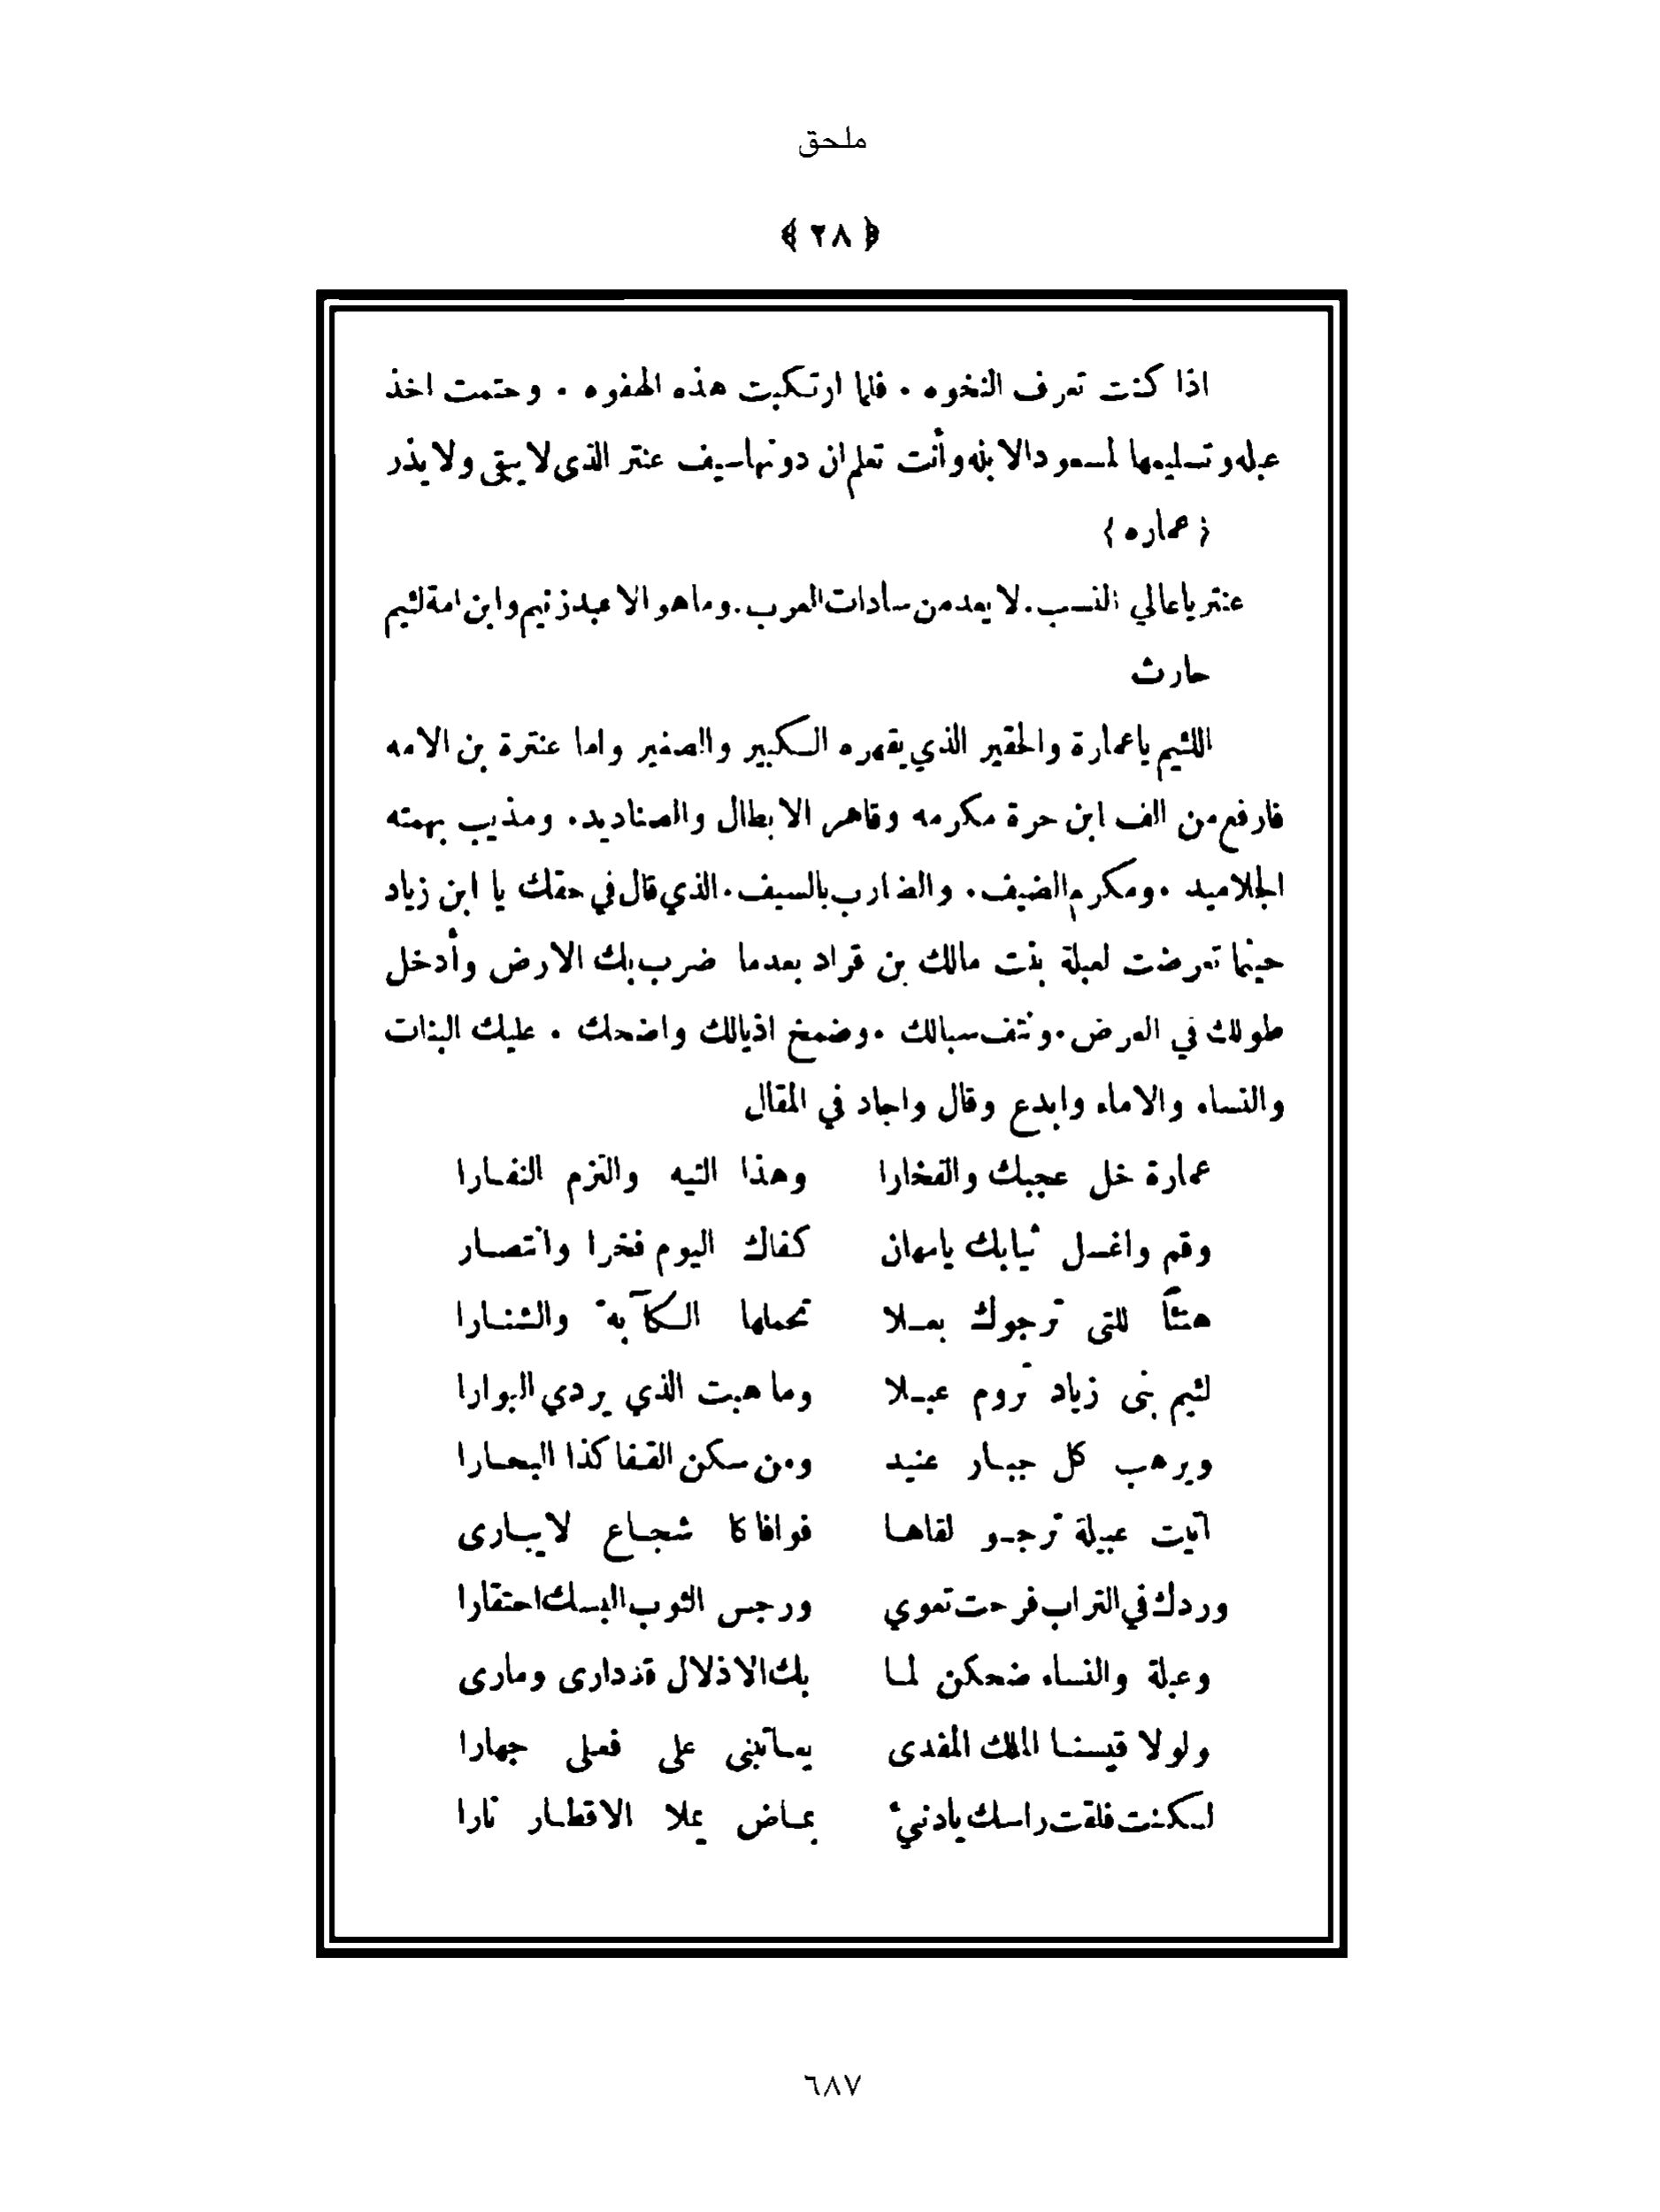 ملحق
﴿ ٢٨ ﴾
اذا كنت تعرف النخوه . فلما ارتكبت هذه الهفوه . وحتمت اخذ
عبله وتسليمها لمسعود الابنه وأنت تعلم ان دونها سيف عنتر الذى لا يبقى ولا يذر
{ عماره }
عنتر يا عالي النسب . لا يعد من سادات العرب . وما هو الا عبد زنيم وابن امة لئيم
حارث
اللئيم ياعمارة والحقير الذي يقهره الكبير والصغير واما عنترة بن الامه
فارفع من الف ابن حرة مكرمه وقاهر الابطال والصناديد . ومذيب بهمته
الجلاميد . ومكرم الضيف . والضارب بالسيف . الذي قال في حقك يا ابن زياد
حينما تعرضت لعبلة بنت مالك بن قراد بعدما ضرب بك الارض وأدخل
طولك في العرض . ونتف سبالك . وضمخ اذيالك واضحك . عليك البنات
والنساء والاماء وابدع وقال واجاد في المقال
عمارة خل عجبك والفخارا وهذا التيه والتزم النفارا
وقم واغسل ثيابك يامهان كفاك اليوم فخرا وانتصار
هنئاً للتى ترجوك بعلا تحملها الكآبة والشنارا
لئيم بنى زياد تروم عبلا وما هبت الذي يردي البوارا
ويرهب كل جبار عنيد ومن سكن القفا كذا البحارا
اتيت عبيلة ترجو لقاها فوافاكا شجاع لايبارى
وردك في التراب فرحت تعوي ورجس الثوب البسك احتقارا
وعبلة والنساء ضحكن لما بك الاذلال قد دارى ومارى
ولولا قيسنا الملك المفدى يعاتبنى على فعلى جهارا
لكنت فلقت راسك يادنيء بماض يملا الاقطار نارا
٦٨٧